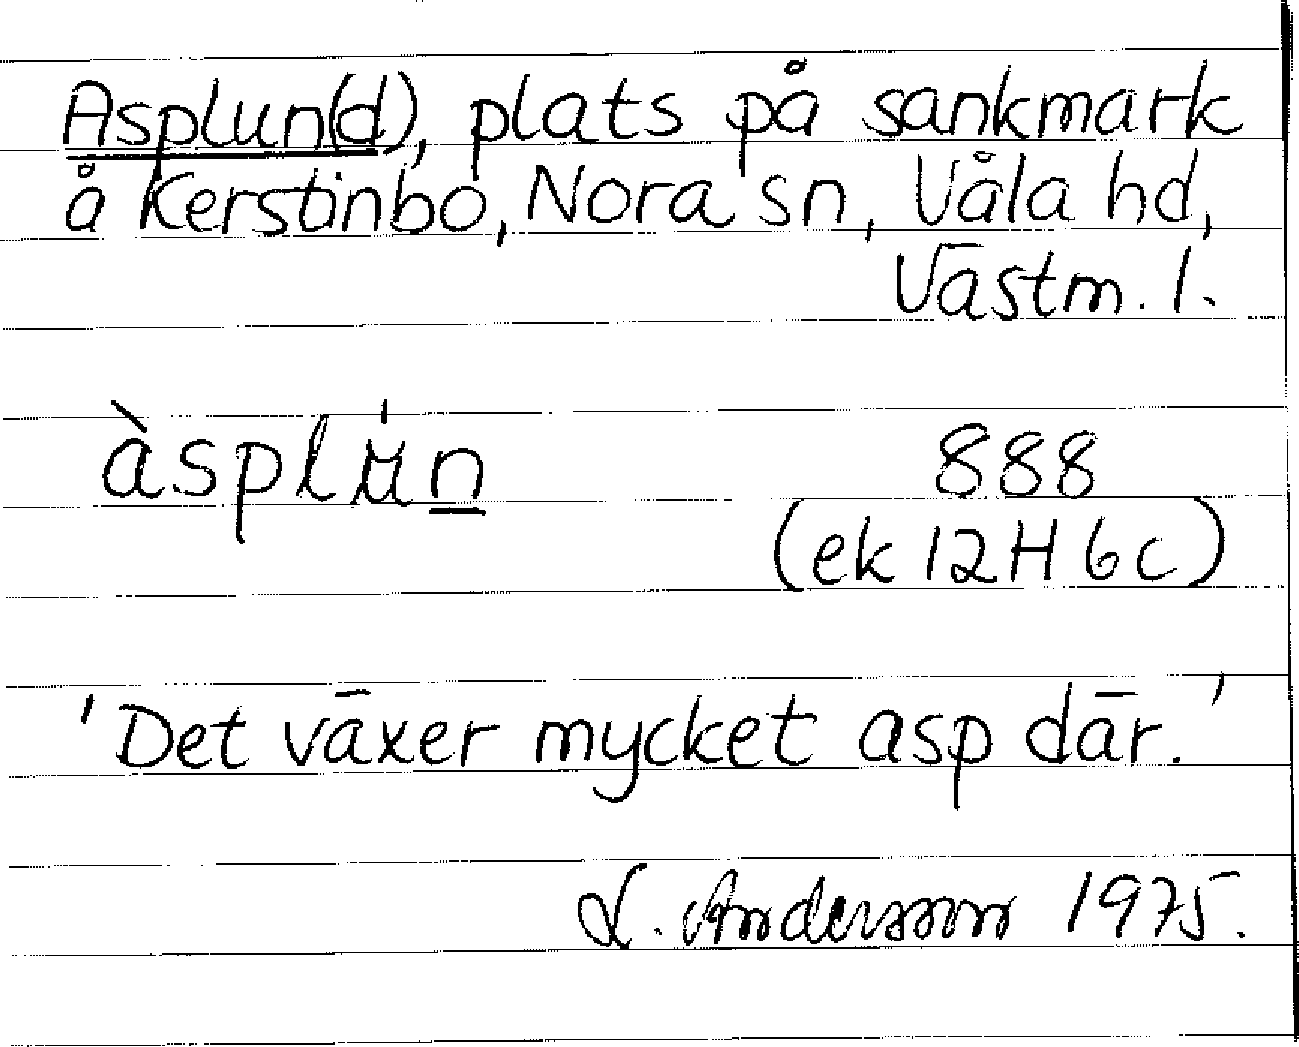 Asplun(d), plats på sankmark
å Kerstinbo, Nora sn, Våla hd,
Västm. l.
àsplʉ̍n̲ 888
(ek 12H 6c)
'Det växer mycket asp där.'
L. Andersson 1975.